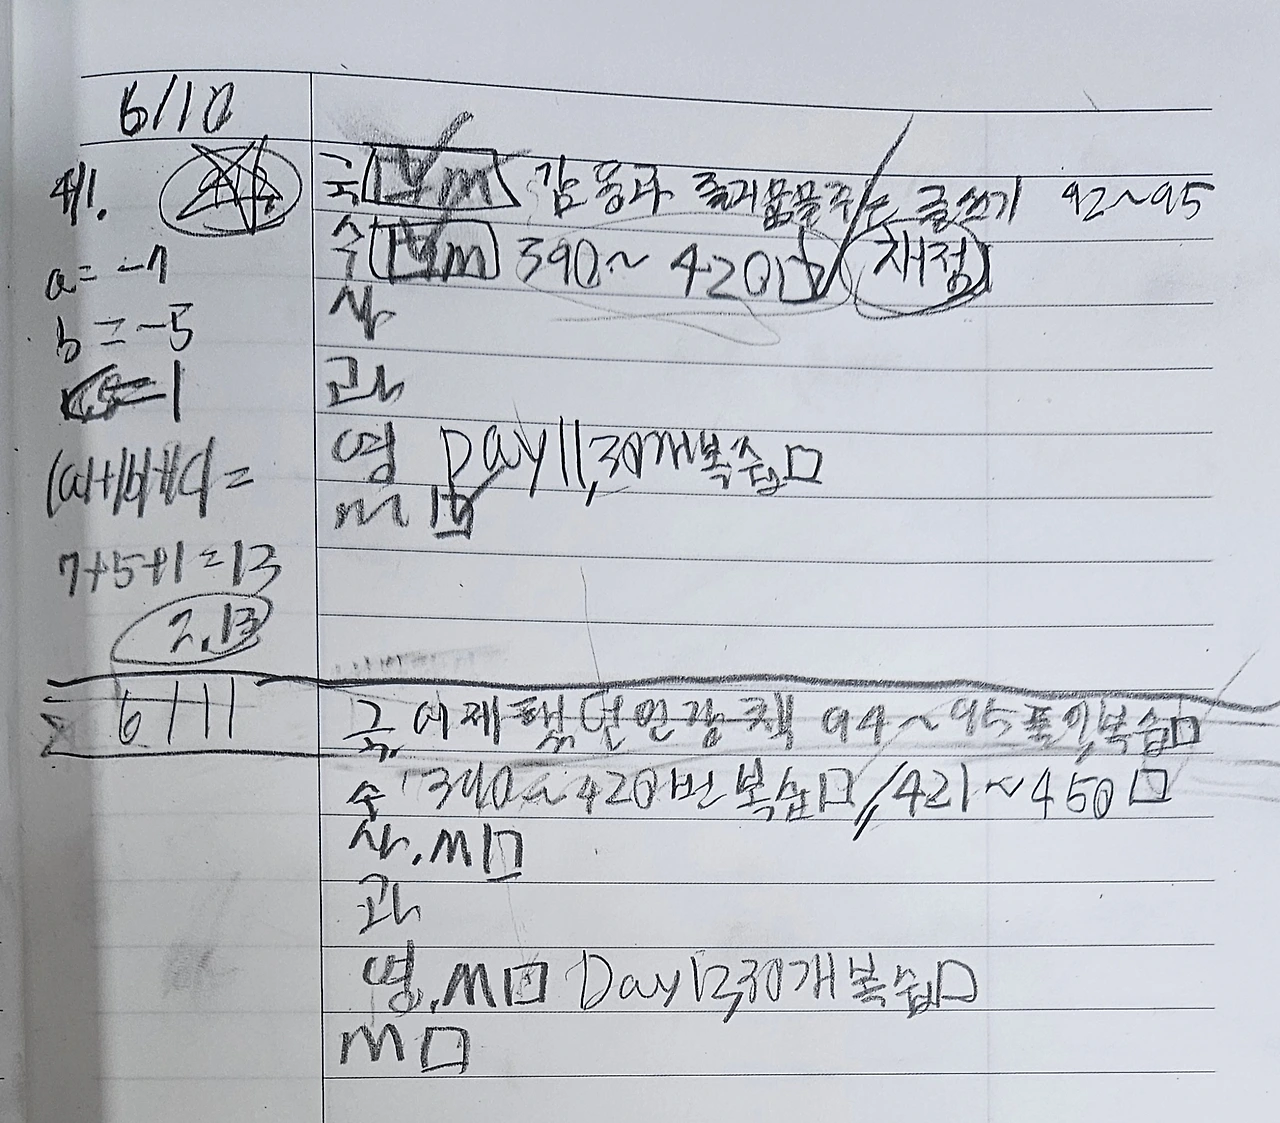 6/10
국 m 감동과 즐거움을 주는 글쓰기 92~95
수 m 390~420번 채점
사
과
영 Day11, 30개복습□
m □
a=-7
b=-5
c=1
|a|+|b|+|c|=
7+5+1=13
2.13
6/11
국. 어제했던인강책 94~95풀이복습□
수 390~420번복습□ // 421~450□
사.m□
과
영.m□ Day12,30개복습□
m□